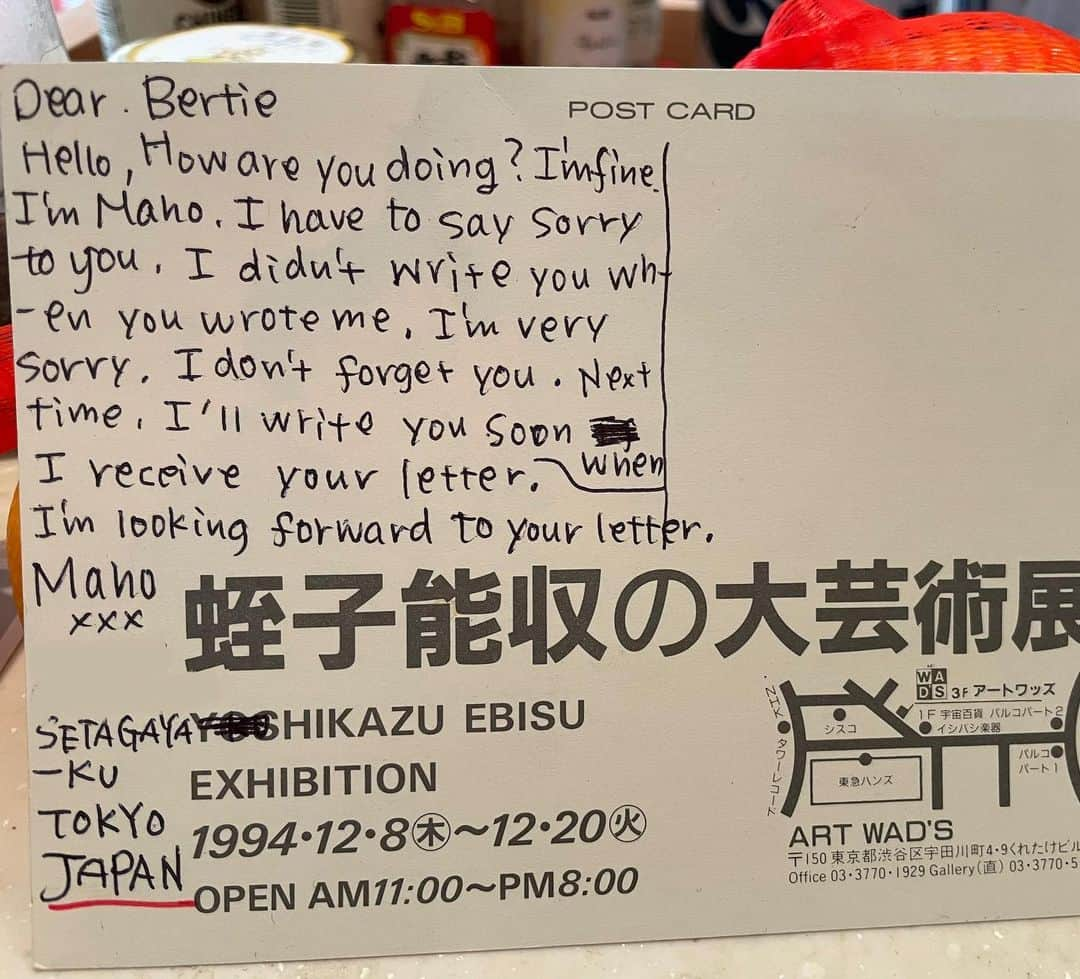 Dear. Bertie
POST CARD
Hello, How are you doing? I'm fine.
I'm Maho. I have to say sorry
to you. I didn't write you wh-
-en you wrote me. I'm very
sorry. I don't forget you. Next
time, I'll write you soon
I receive your letter. when
I'm looking forward to your letter.
Maho
xxx
蛭子能収の大芸術展
SETAGAYA
-KU
TOKYO
JAPAN
SHIKAZU EBISU
EXHIBITION
1994・12・8㊍〜12・20㊋
OPEN AM11:00〜PM8:00
WADS 3F アートワッズ
1F 宇宙百貨 パルコパート2
シスコ
イシバシ楽器
タワーレコード
東急ハンズ
パルコ
パート1
ART WAD'S
〒150 東京都渋谷区宇田川町4・9くれたけビル
Office 03・3770・1929 Gallery(直) 03・3770・5